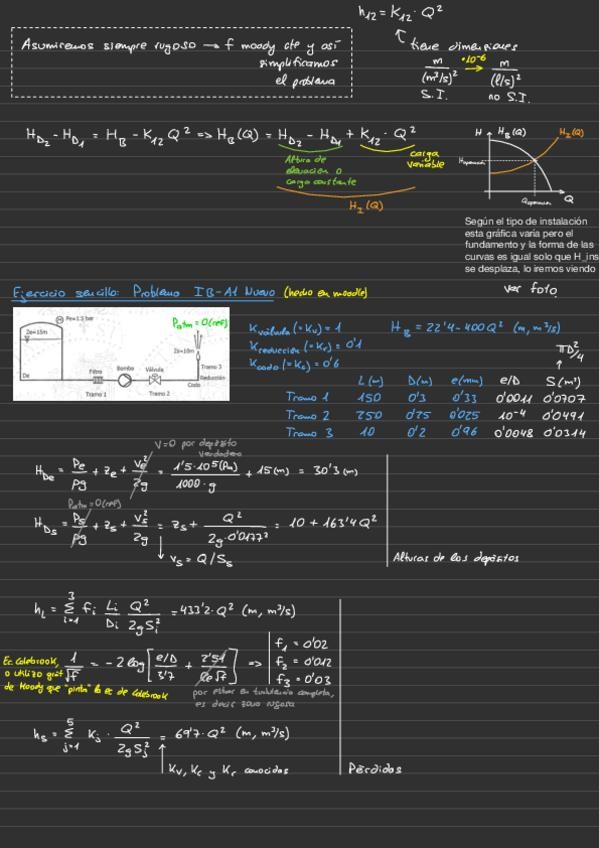 h12 = K12 · Q²
Asumiremos siempre rugoso → f moody cte y así
simplificamos
el problema
tiene dimensiones
m/(m³/s)² ·10⁻⁶ → m/(l/s)²
S.I. no S.I.
H_D2 - H_D1 = H_B - K12 Q² => H_B(Q) = H_D2 - H_D1 + K12 · Q²
Altura de
elevación o
carga constante
carga
variable
H_I(Q)
H H_B(Q) H_I(Q)
Hoperación
Qoperación Q
Según el tipo de instalación
esta gráfica varía pero el
fundamento y la forma de las
curvas es igual solo que H_ins
se desplaza, lo iremos viendo
ver foto
Ejercicio sencillo: Problema IB-A1 Nuevo (hecho en moodle)
Pe=1.5 bar
Ze=15m
Patm = 0 (ref)
Zs=10m
De
Filtro Bomba Válvula
Tramo 3
Reducción
Codo
Tramo 1 Tramo 2
Kválvula (=Kv) = 1
Kreducción (=Kr) = 0'1
Kcodo (=Kc) = 0'6
H_B = 22'4 - 400Q² (m, m³/s)
πD²/4
L(m) D(m) e(mm) e/D S(m²)
Tramo 1 150 0'3 0'33 0'0011 0'0707
Tramo 2 250 0'25 0'025 10⁻⁴ 0'0491
Tramo 3 10 0'2 0'96 0'0048 0'0314
V=0 por depósito
verdadero
H_De = Pe/ρg + ze + ve²/2g = 1'5·10⁵(Pa)/1000·g + 15(m) = 30'3 (m)
Patm = 0 (ref)
H_Ds = Ps/ρg + zs + vs²/2g = zs + Q²/2g·0'0177² = 10 + 163'4 Q²
vs = Q/Ss
Alturas de los depósitos
hL = Σ(i=1, 3) fi Li/Di Q²/2gSi² = 433'2·Q² (m, m³/s)
Ec. Colebrook,
o utilizo gráf
de Moody que "pinta" la ec de Colebrook
1/√f = -2log[e/D/3'7 + 2'51/Re√f] =>
f1 = 0'02
f2 = 0'012
f3 = 0'03
por estar en turbulento completa,
es decir zona rugosa
hs = Σ(j=1, 5) Kj · Q²/2gSj² = 69'7·Q² (m, m³/s)
Kv, Kc y Kr conocidas
Pérdidas